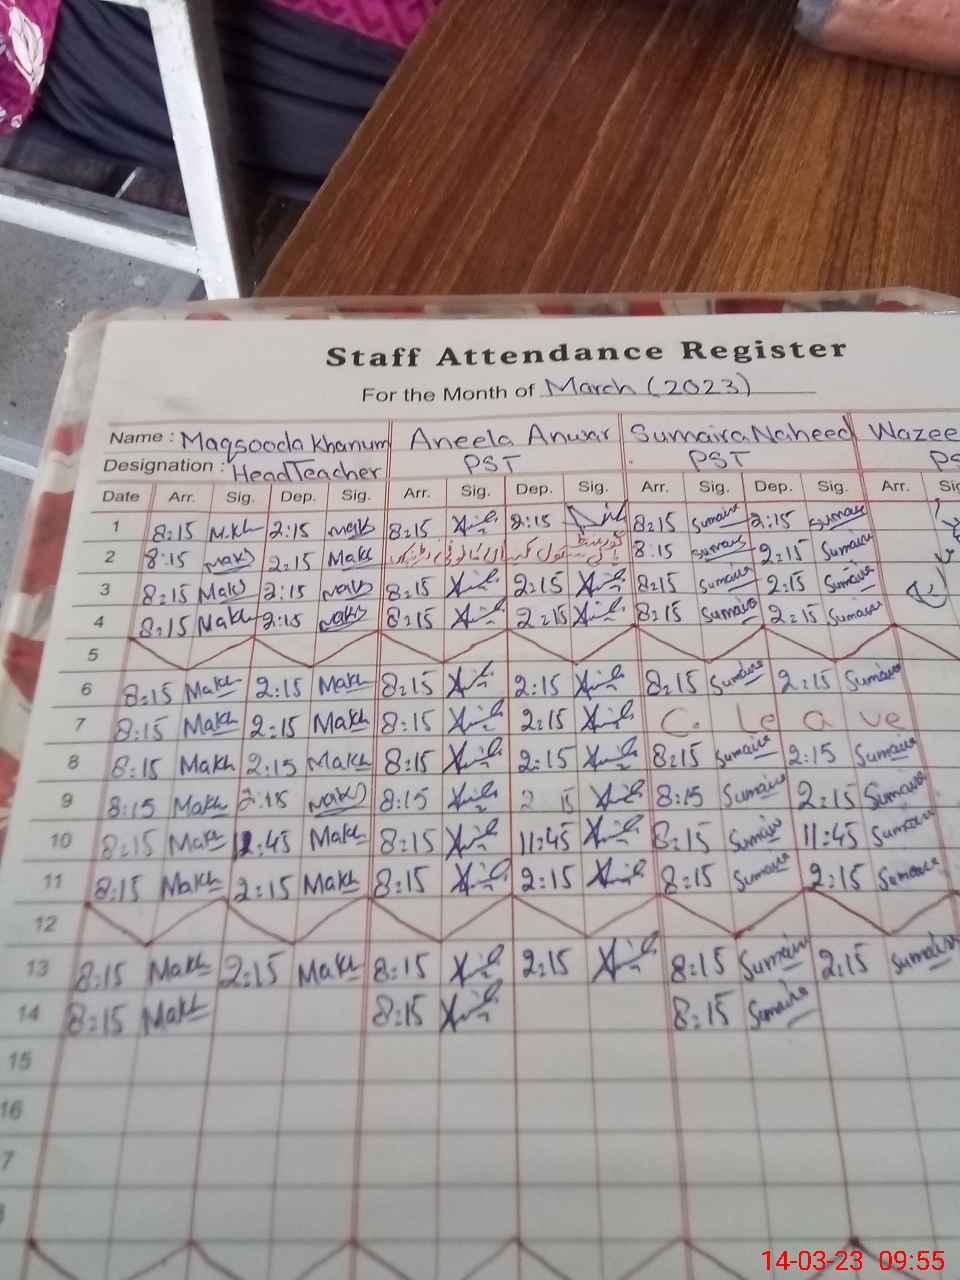 Staff Attendance Register
For the Month of March (2023)
Name : Maqsooda Khanum Aneela Anwar Sumaira Naheed Wazee
Designation : Head Teacher PST PST PS
Date Arr. Sig. Dep. Sig. Arr. Sig. Dep. Sig. Arr. Sig. Dep. Sig. Arr. Sig
1 8:15 M.Kh 2:15 Makh 8:15 2:15 8:15 Sumaira 2:15 Sumaira
2 8:15 Makh 2:15 Makh 8:15 Sumaira 2:15 Sumaira
3 8:15 Makh 2:15 Makh 8:15 2:15 8:15 Sumaira 2:15 Sumaira
4 8:15 Makh 2:15 Makh 8:15 2:15 8:15 Sumaira 2:15 Sumaira
5
6 8:15 Makh 2:15 Makh 8:15 2:15 8:15 Sumaira 2:15 Sumaira
7 8:15 Makh 2:15 Makh 8:15 2:15 C. Le a ve
8 8:15 Makh 2:15 Makh 8:15 2:15 8:15 Sumaira 2:15 Sumaira
9 8:15 Makh 2:15 Makh 8:15 2 15 8:15 Sumaira 2:15 Sumaira
10 8:15 Makh 11:45 Makh 8:15 11:45 8:15 Sumaira 11:45 Sumaira
11 8:15 Makh 2:15 Makh 8:15 2:15 8:15 Sumaira 2:15 Sumaira
12
13 8:15 Makh 2:15 Makh 8:15 2:15 8:15 Sumaira 2:15 Sumaira
14 8:15 Makh 8:15 8:15 Sumaira
15
16
7
14-03-23 09:55